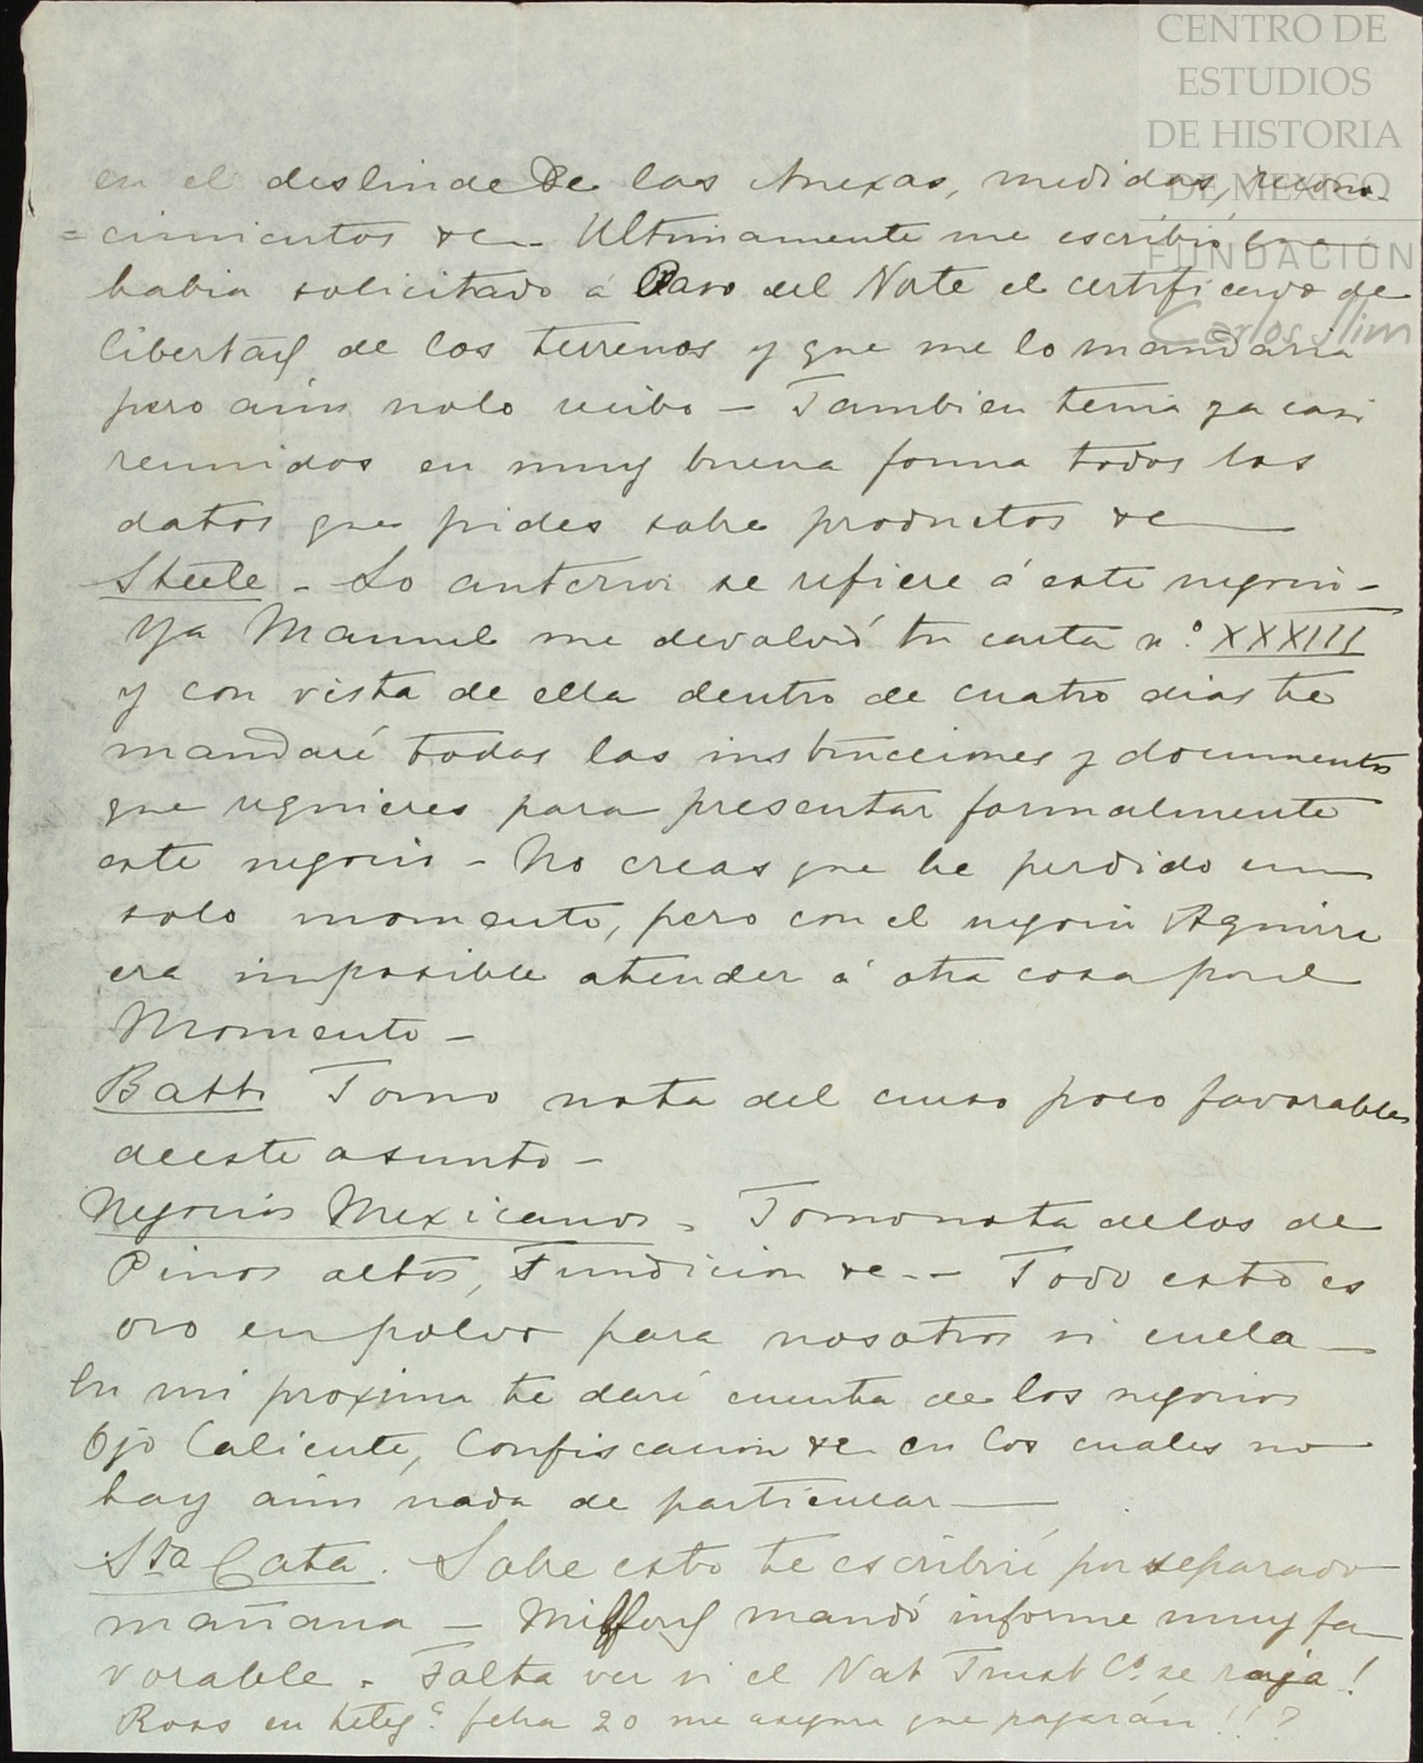 CENTRO DE
ESTUDIOS
DE HISTORIA
DE MEXICO
FUNDACIÓN
Carlos Slim
en el deslinde de las Anexas, medidas, recono-
=cimientos &c - Ultimamente me escribió que
habia solicitado á Paso del Norte el certificado de
libertad de los terrenos y que me lo mandaria
pero aún nolo recibo - Tambien tenia ya casi
reunidos en muy buena forma todos los
datos que pides sobre productos &c
Steele - Lo anterior se refiere á este negocio -
Ya Manuel me devolvió tu carta nº XXXIII
y con vista de ella dentro de cuatro dias te
mandaré todas las instrucciones y documentos
que requieres para presentar formalmente
este negocio - No creas que he perdido un
solo momento, pero con el negocio Aguirre
era imposible atender á otra cosa por el
Momento -
Batts Tomo nota del curso poco favorable
de este asunto -
Negocios Mexicanos - Tomo nota de los de
Pinos altos, Fundicion &c -- Todo esto es
oro en polvo para nosotros si cuela -
En mi proxima te daré cuenta de los negocios
Ojo Caliente, Confiscacion &c en los cuales no
hay aún nada de particular
Sta Cata. Sobre esto te escribiré por separado
mañana - Mifford mandó informe muy fa-
vorable - Falta ver si el Nat Trust Cº se raja!
Ross en telegª fecha 20 me asegura que pagarán!!?